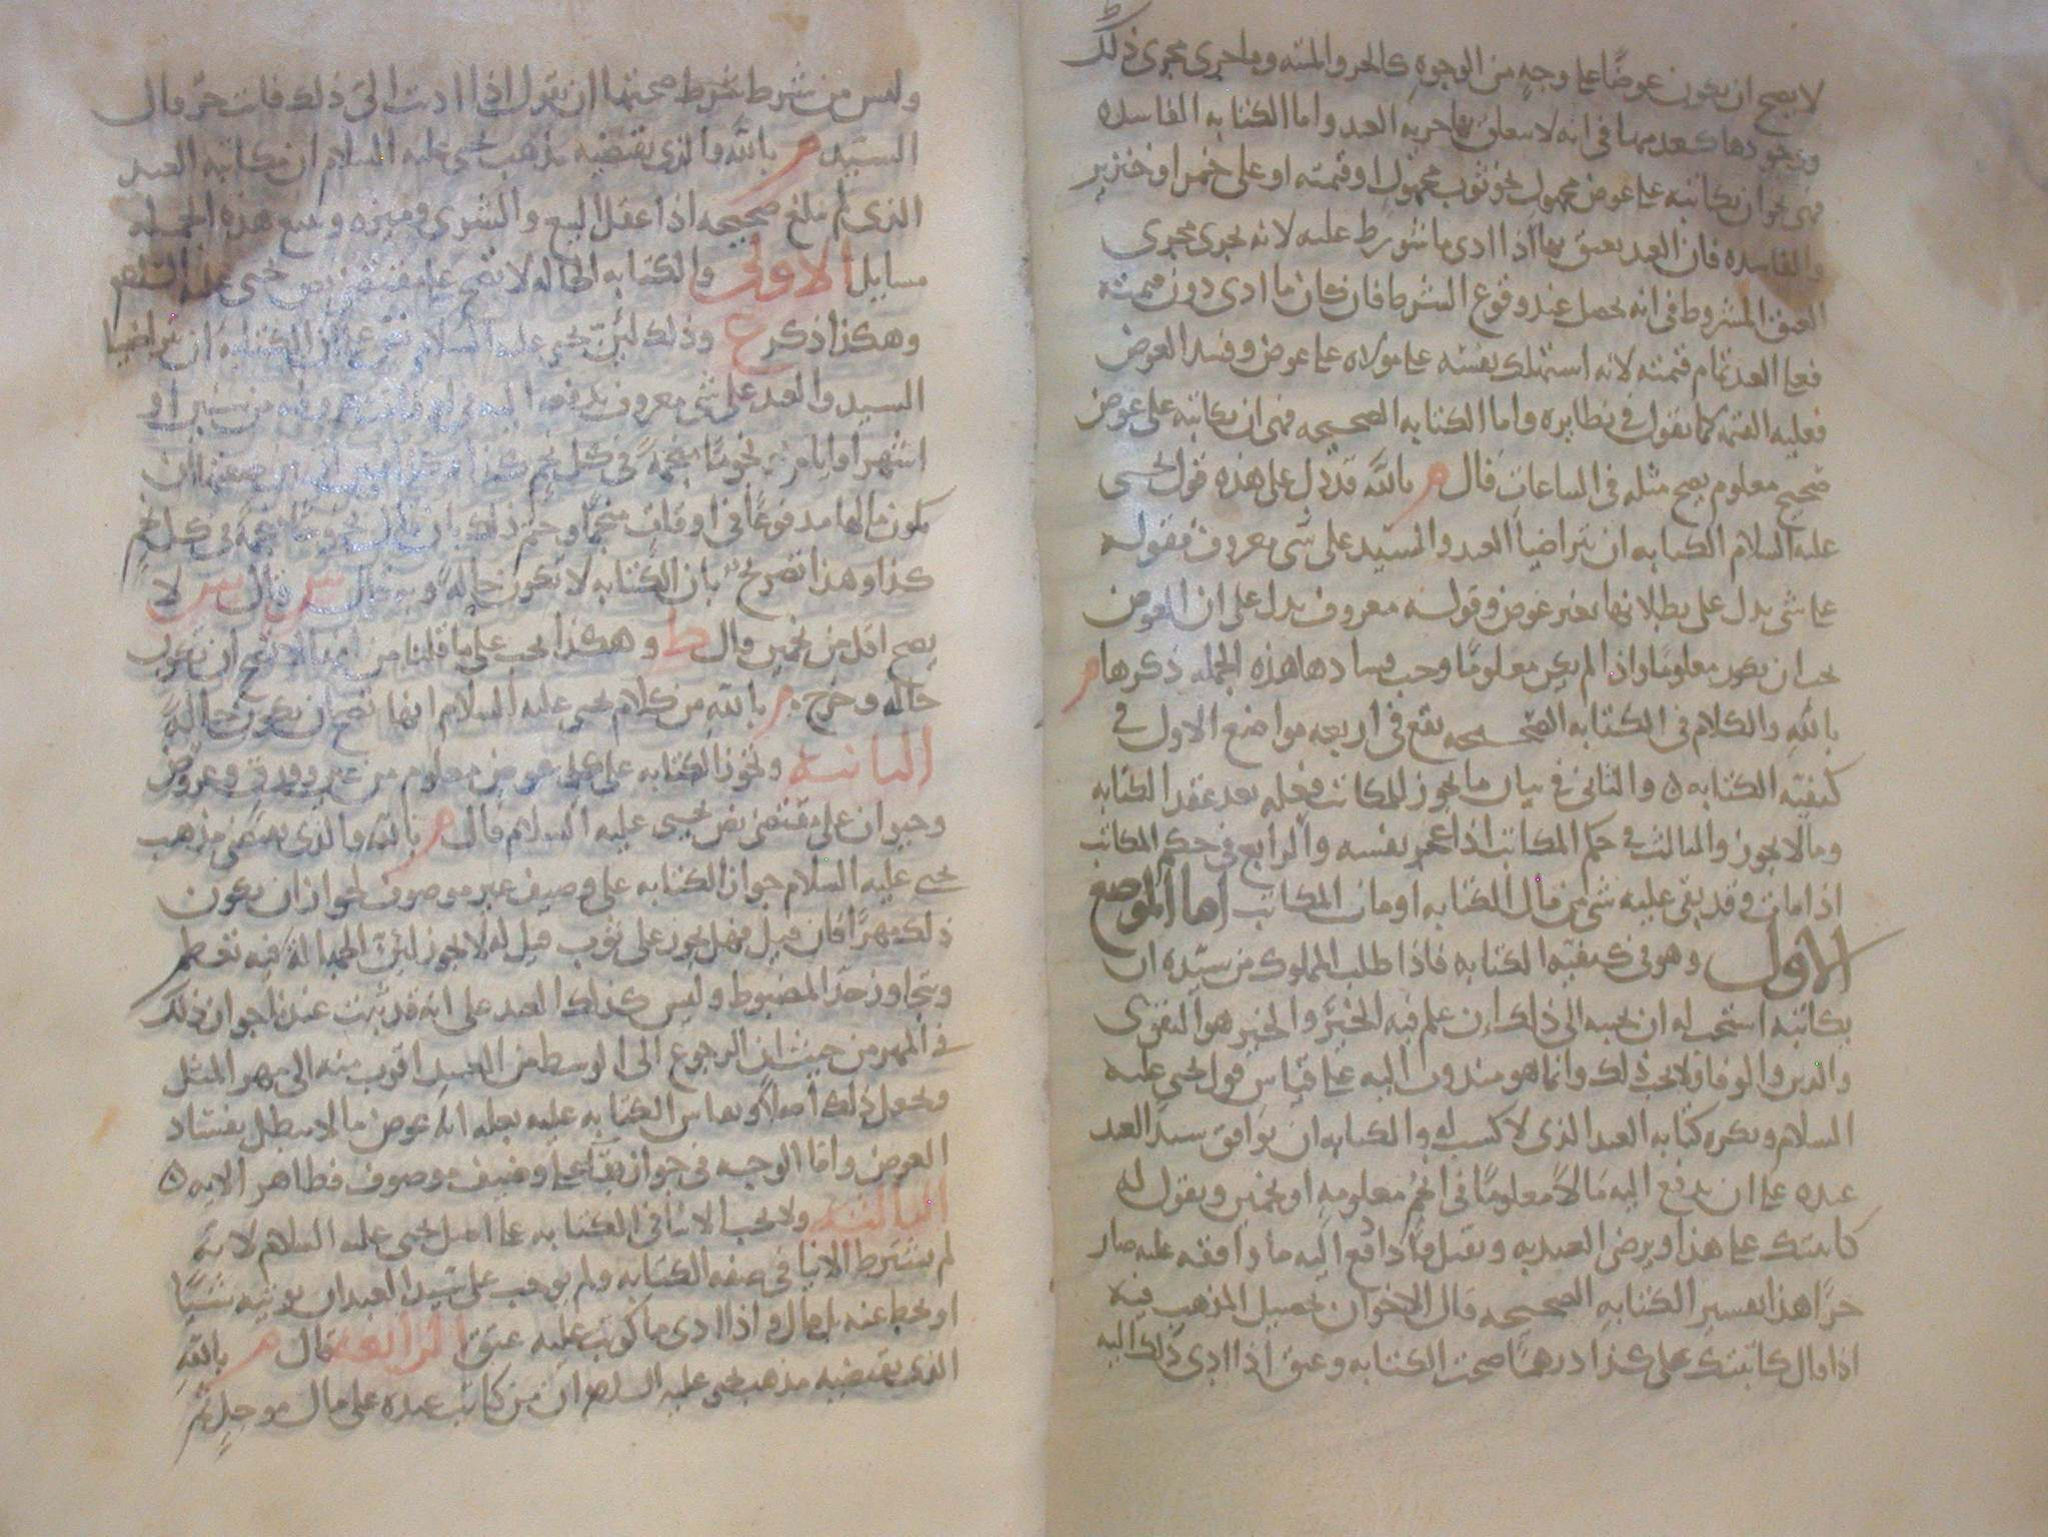 لا يصح ان يكون عوضًا على وجهٍ من الوجوه كالحر والميته وما جرى مجرى ذلك
وجودها كعدمها في انه لا يتعلق بها حريه العبد واما الكتابه الفاسده
فهى نحو ان يكاتبه على عوض مجهول نحو ثوب مجهول او قيمته او على خمر او خنزير
والفاسده فان العبد يعتق بها اذا ادى ما شورط عليه لانه يجرى مجرى
العتق المشروط في انه يحصل عند وقوع الشرط فان كان ما ادى دون قيمته
فعلى العبد تمام قيمته لانه استهلك نفسه على مولاه على عوض وفسد العوض
فعليه القيمه كما نقول في نظايره واما الكتابه الصحيحه فهى ان يكاتبه على عوض
صحيح معلوم يصح مثله في الساعات قال م بالله قد دل على هذه قول يحيى
عليه السلام الكتابه ان يتراضيا العبد والسيد على شى معروف فقوله
على شى يدل على بطلانها بغير عوض وقوله معروف يدل على ان العوض
يجب ان يكون معلومًا واذا لم يكن معلومًا وجب فسادها هذه الجمله ذكرها م
بالله والكلام في الكتابه الصحيحه يقع في اربعه مواضع الاول في
كيفيه الكتابه والثانى في بيان ما يجوز للمكاتب فعله بعد عقد الكتابه
وما لا يجوز والثالث في حكم المكاتب اذا عجز نفسه والرابع في حكم المكاتب
اذا مات وقد بقى عليه شى من مال الكتابه او مات المكاتب اما الموضع
الاول وهو في كيفيه الكتابه فاذا طلب المملوك من سيده ان
يكاتبه استحب له ان يجيبه الى ذلك ان علم فيه الخير والخير هو التقوى
والدين والوفا ولا يجب ذلك وانما هو مندوب اليه على قياس قول يحيى عليه
السلام ويكره كتابه العبد الذى لا كسب له والكتابه ان يوافق سيد العبد
عبده على ان يدفع اليه مالًا معلومًا في انجم معلومه او نجمين ويقول له
كاتبتك على هذا ويرضى العبد به ويقبل فاذا دفع اليه ما وافقه عليه صار
حرًا هذا تفسير الكتابه الصحيحه قال الاخوان تحصيل المذهب فيه
اذا قال كاتبتك على كذا درهمًا صحت الكتابه وعتق اذا ادى ذلك اليه
وليس من شرط شرط صحتها ان يقول اذا اديت الى ذلك فانت حر قال
السيد م بالله والذى يقتضيه مذهب يحيى عليه السلام ان مكاتبه العبد
الذى لم يبلغ صحيحه اذا عقل البيع والشرى وميزه ويتبع هذه الجمله
مسايل الاولى والكتابه الحاله لا تصح على مقتضى نص يحيى عليه السلام
وهكذا ذكر ع وذلك لان يحيى عليه السلام نص على ان الكتابه ان يتراضيا
السيد والعبد على شى معروف يدفعه اليه في اوقات معروفه من سنين او
اشهر او ايام نجومًا منجمةً في كل نجم كذا
يكون مالها مدفوعًا في اوقات منجمًا وختم ذلك بان قال نجومًا منجمةً في كل نجم
كذا وهذا تصريح بان الكتابه لا تكون حالةً وبه قال ش قال ش لا
يصح اقل من نجمين قال ط وهكذا يجب على ما قلنا من انها لا تصح ان تكون
حاله وخرج م بالله من كلام يحيى عليه السلام انها تصح ان تكون حالةً
الثانيه وتجوز الكتابه على كل عوض معلوم من عين وورق وعروض
وحيوان على مقتضى نص يحيى عليه السلام قال م بالله والذى يقتضى مذهب
يحيى عليه السلام جواز الكتابه على وصيف غير موصوف لجواز ان يكون
ذلك مهرًا فان قيل فهل يجوز على ثوب قيل له لا يجوز لان الجهاله فيه تعظم
وتتجاوز حد المضبوط وليس كذلك العبد على انه قد ثبت عندنا جواز ذلك
في المهر من حيث ان الرجوع الى الوسط من العبيد اقرب منه الى مهر المثل
ونجعل ذلك اصلًا ونقاس الكتابه عليه بعله انه عوض ما لا يبطل بفساد
العوض واما الوجه في جوازها على وصيف موصوف فظاهر الايه
الثالثه ولا يجب الايتا في الكتابه على اصل يحيى عليه السلام لانه
لم يشترط الايتا في صفه الكتابه ولم يوجب على سيد العبد ان يوتيه شيئًا
او يحط عنه بل قال واذا ادى ما كوتب عليه عتق الرابعه قال م بالله
الذى يقتضيه مذهب يحيى عليه السلام ان من كاتب عبده على مال موجل ثم